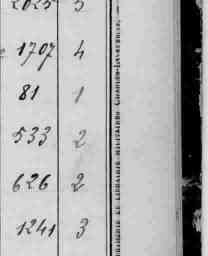 2025 5
1707 4
81 1
533 2
626 2
1241 3
IMPRIMERIE ET LIBRAIRIE MILITAIRES CHARLES-LAVAUZELLE.